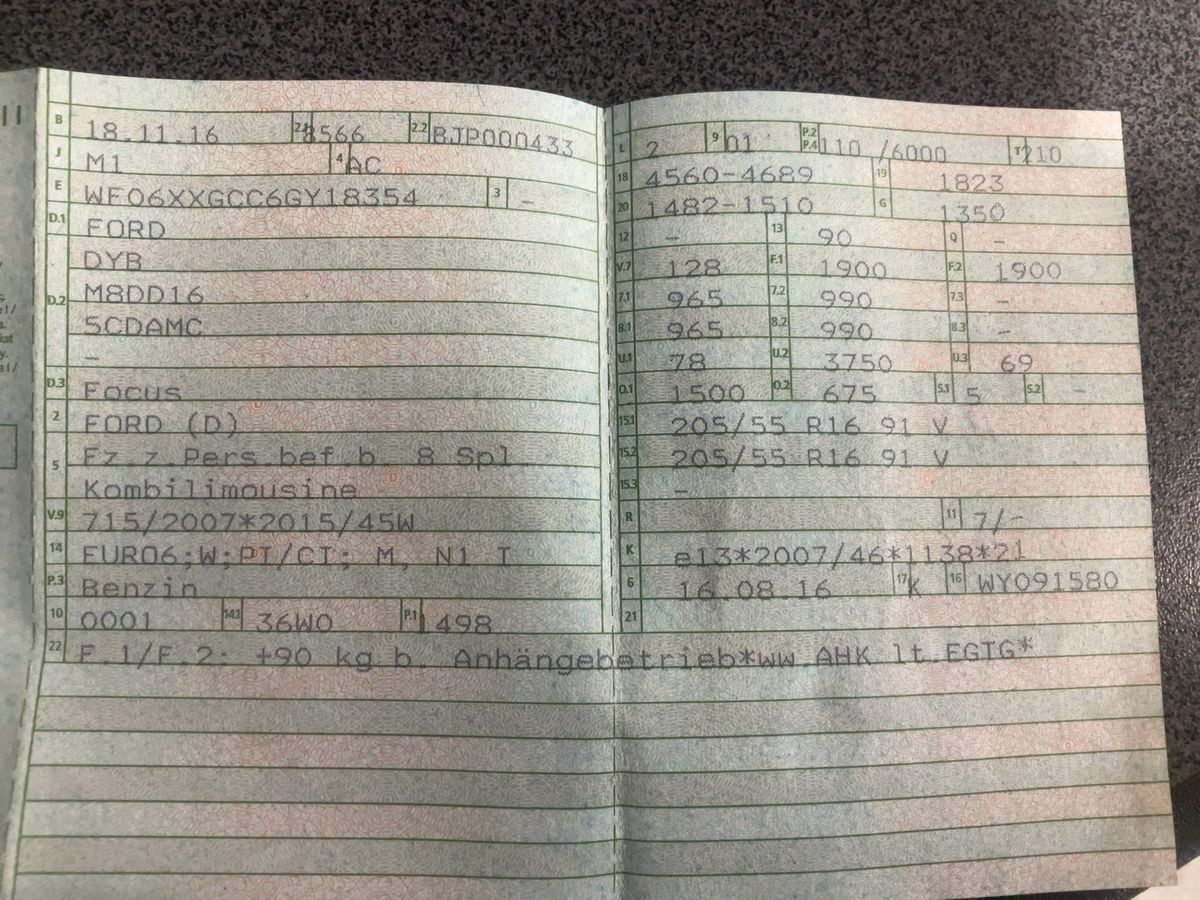 B 18.11.16 2.1 8566 2.2 BJP000433
J M1 4 AC
E WF06XXGCC6GY18354 3 –
D.1 FORD
DYB
D.2 M8DD16
5CDAMC
–
D.3 Focus
2 FORD (D)
5 Fz.z.Pers.bef.b. 8 Spl.
Kombilimousine
V.9 715/2007*2015/45W
14 EURO6;W;PI/CI; M, N1 I
P.3 Benzin
10 0001 14.1 36W0 P.1 1498
L 2 9 01 P.2 P.4 110 /6000 T 210
18 4560-4689 19 1823
20 1482-1510 G 1350
12 – 13 90 Q –
V.7 128 F.1 1900 F.2 1900
7.1 965 7.2 990 7.3 –
8.1 965 8.2 990 8.3 –
U.1 78 U.2 3750 U.3 69
O.1 1500 O.2 675 S.1 5 S.2 –
15.1 205/55 R16 91 V
15.2 205/55 R16 91 V
15.3 –
R 11 7/-
K e13*2007/46*1138*21
6 16.08.16 17 K 16 WY091580
21
22 F.1/F.2: +90 kg b. Anhängebetrieb*ww.AHK lt.EGTG*